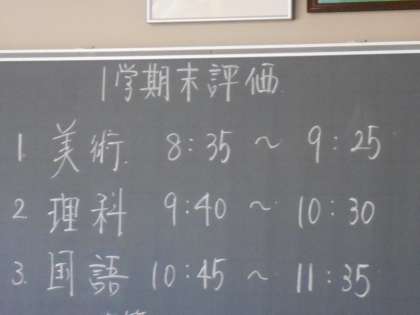 1学期末評価
1. 美術. 8:35 ~ 9:25
2 理科 9:40 ~ 10:30
3. 国語 10:45 ~ 11:35